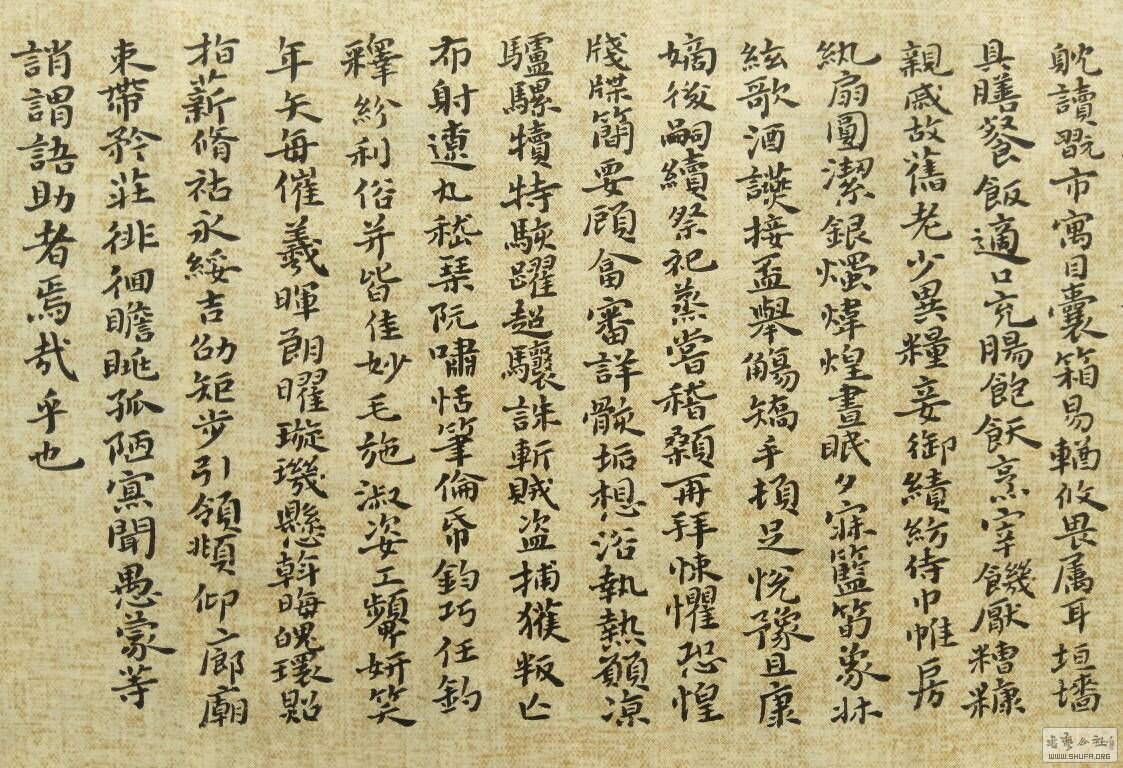 躭讀翫市寓目囊箱易輶攸畏属耳垣墻
具膳餐飯適口充腸飽飫烹宰饑厭糟糠
親戚故舊老少異糧妾御績紡侍巾帷房
紈扇圓潔銀燭煒煌晝眠夕寐籃笋象牀
絃歌酒讌接盃舉觴矯手頓足悅豫且康
嫡後嗣續祭祀蒸嘗稽顙再拜悚懼恐惶
牋牒簡要顧畣審詳骸垢想浴執熱願凉
驢騾犢特駭躍超驤誅斬賊盗捕獲叛亡
布射遼丸嵇琴阮嘯恬筆倫帋鈞巧任釣
釋紛利俗并皆佳妙毛施淑姿工顰妍笑
年矢每催羲暉朗曜璇璣懸斡晦魄環照
指薪脩祜永綏吉劭矩步引領頫仰廊廟
束帶矜莊徘徊瞻眺孤陋寡聞愚蒙等
誚謂語助者焉哉乎也
WWW.SHUFA.ORG